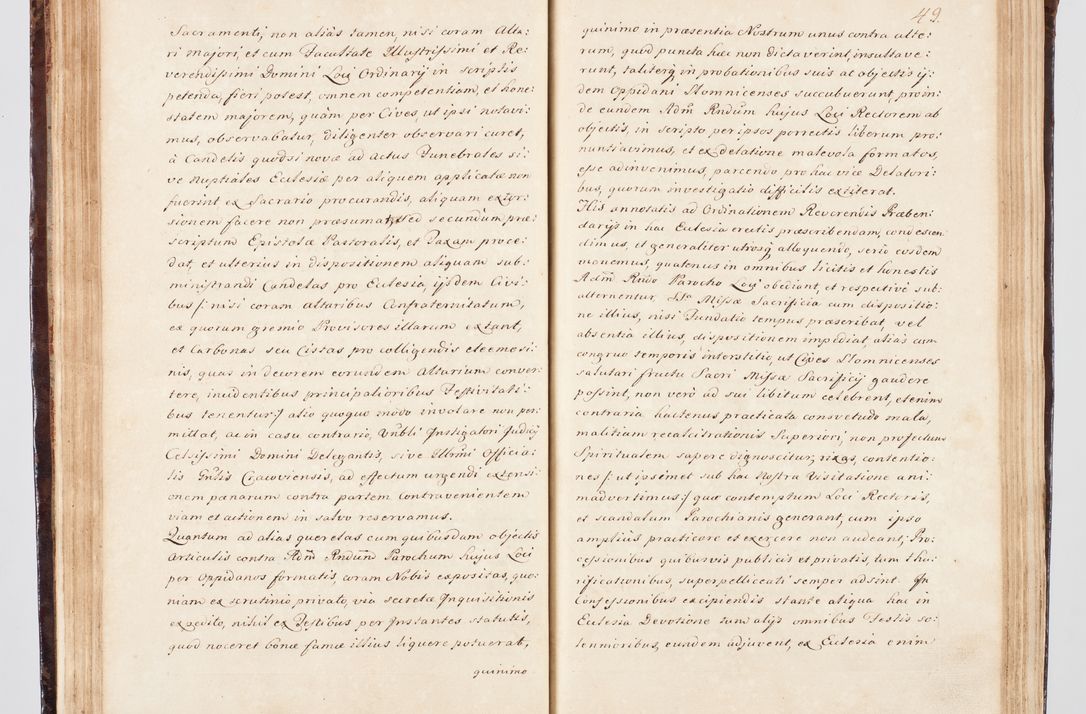 Sacramenti, non aliàs tamen, nisi coram Alta:
ri majori, et cum Facultate Illustrissimi et Re:
verendissimi Domini Loci Ordinarij in scriptis
petenda, fieri potest, omnem competentiam, et hone:
statem majorem, quàm per Cives, ut ipsi notavi:
mus, observabatur, diligenter observari curet,
à Candelis quòdsi novæ ad actus Funebrales si:
ve Nuptiales Ecclesiæ per aliquem applicatæ non
fuerint ex Sacrario procurandis, aliquam extor:
sionem facere non præsumat, sed secundùm præ:
scriptum Epistolæ Pastoralis, et Taxam proce:
dat, et ulterius in dispositionem aliquam sub:
ministrandi Candelas pro Ecclesia, ijsdem Civi:
bus /: nisi coram altaribus Confraternitatum,
ex quorum gremio Provisores illarum extant,
et Carbonas seu Cistas pro colligendis eleemosi:
nis, quas in decorem eorundem Altarium conver:
tere, incidentibus principalioribus Festivitati:
bus tenentur :/ alio quoquo modo involare non per:
mittat, ac in casu contrario, Vnbli Instigatori Judicij
Celsissimi Domini Delegantis, sive Illrmi Officia:
lis Gnlis Cracoviensis, ad effectum urgendi extensi:
onem pænarum contra partem Contravenientem
viam et actionem in salvo reservamus.
Quantum ad alias querelas cum quibusdam objectis
Articulis contra Adm Rndum Parochum hujus Loci
per Oppidanos formatis, coram Nobis expositas, quo:
niam ex scrutinio privato, via secretæ Inquisitionis
expedito, nihil ex Testibus per Instantes statutis,
quod noceret bonæ famæ illius liquere potuerat,
quinimo
49.
quinimo in præsentia Nostrum unus contra alte:
rum, quòd puncta hæc non dictaverint, insultave:
runt, taliterq in probationibus suis ac objectis ij:
dem Oppidani Slomnicenses succubuerunt, proin:
de eundem Adm Rndum hujus Loci Rectorem ab
objectis, in scripto per ipsos porrectis liberum pro:
nuntiavimus, et ex delatione malevola formatos,
esse adinvenimus, parcendo pro hac vice Delatori:
bus, quorum investigatio difficilis extiterat.
His annotatis ad Ordinationem Reverendis Præben:
darijs in hac Ecclesia erectis præscribendam, condescen
dimus, et generaliter utrosq alloquendo, seriò eosdem
monemus, quatenus in omnibus licitis et honestis
Adm Rndo Parocho Loci obediant, et respectivè sub:
alternentur, Sta Missæ Sacrificia cum dispositio:
ne illius, nisi Fundatio tempus præscribat, vel
absentia illius, dispositionem impediat, aliàs cum
congruo temporis interstitio, ut Cives Slomnicenses
salutari fructu Sacri Missæ Sacrificij gaudere
possint, non verò ad sui libitum celebrent, etenim
contraria hactenus practicata consvetudo mala,
malitiam recalcitrationis Superiori, non profectum
Spiritualem sapere dignoscitur, rixas, contentio:
nes /: ut ipsimet sub hac Nostra Visitatione ani:
madvertimus :/ quæ contemptum Loci Rectoris,
et scandalum Parochianis generant, cum ipso
ampliùs practicare et exercere non audeant, Pro:
cessionibus quibusvis publicis et privatis, tum thu:
rificationibus, superpelliceati semper adsint. In
Confessionibus excipiendis stante aliqua hac in
Ecclesia Devotione tum alijs omnibus Festis so:
lennioribus, eundem adjuvent, ex Ecclesia enim